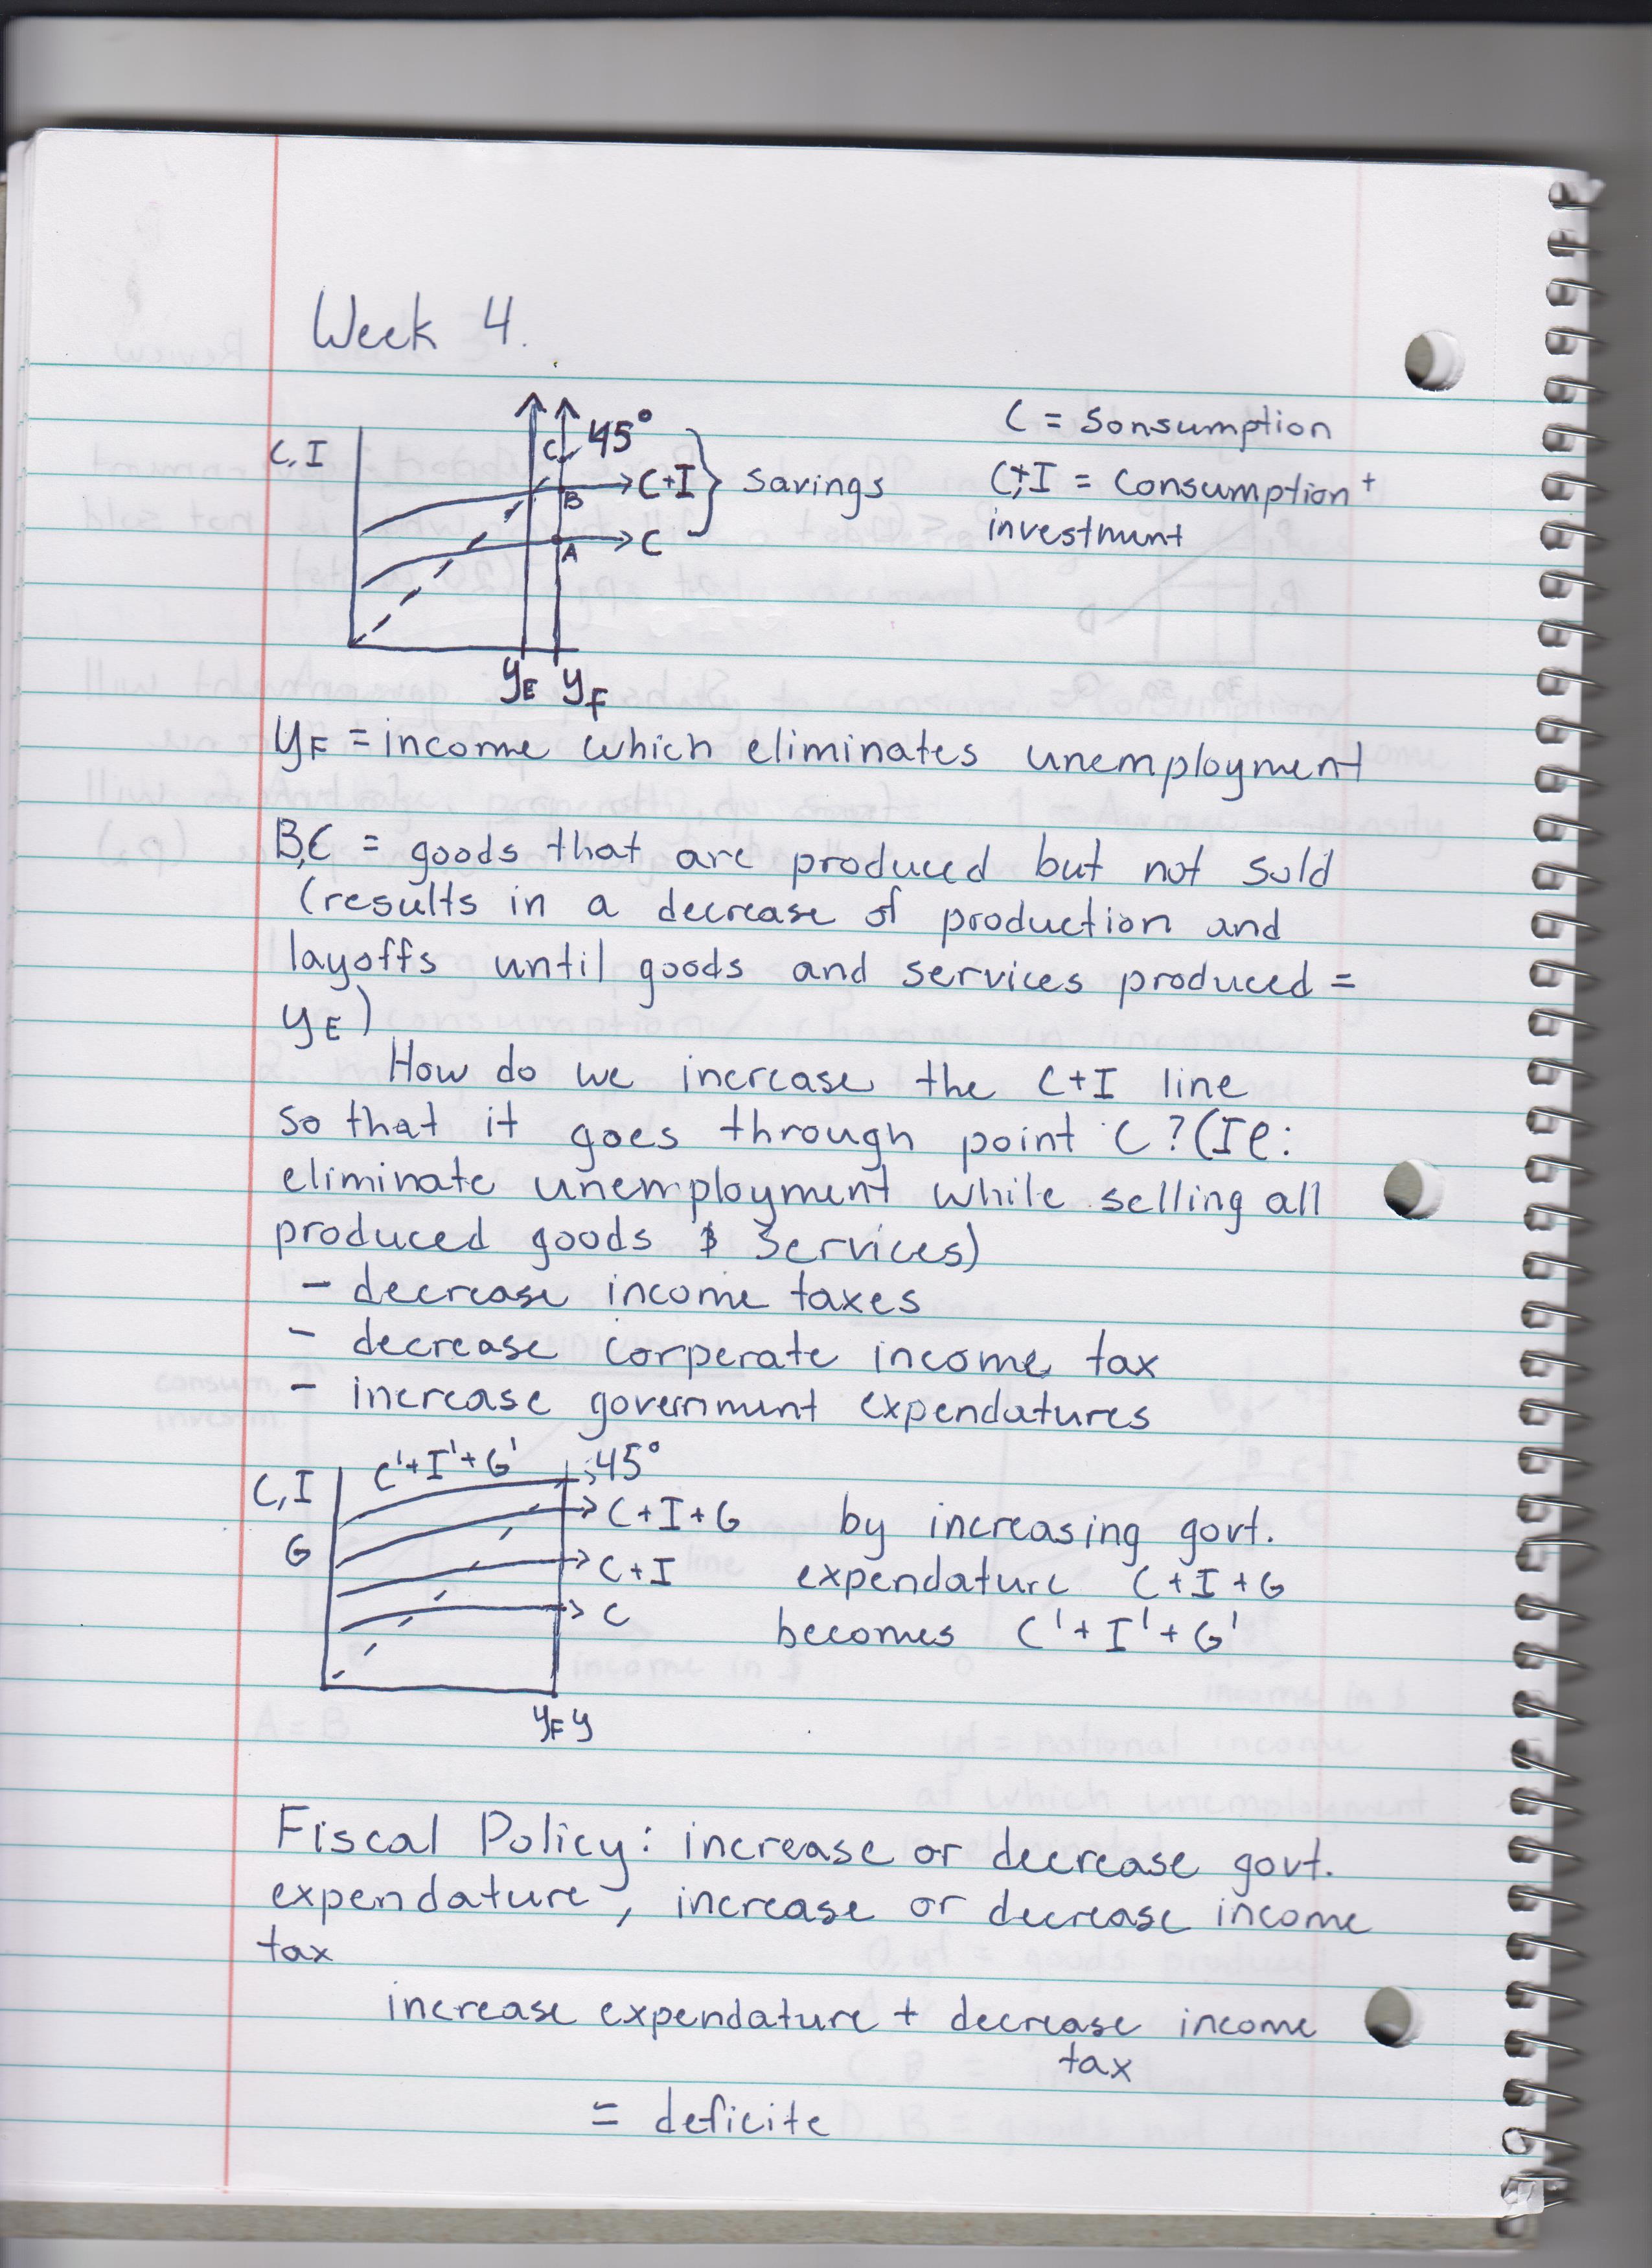 Week 4.
C, I
C
45°
C+I
Savings
B
C
A
yE yF
C = Sonsumption
C+I = Consumption +
investment
yF = income which eliminates unemployment
B,C = goods that are produced but not sold
(results in a decrease of production and
layoffs until goods and services produced =
yE)
How do we increase the C+I line
so that it goes through point C? (Ie:
eliminate unemployment while selling all
produced goods & Services)
- decrease income taxes
- decrease corperate income tax
- increase government expendatures
C, I
G
C'+I'+G'
45°
C+I+G
C+I
C
yF y
by increasing govt.
expendature C+I+G
becomes C'+I'+G'
Fiscal Policy: increase or decrease govt.
expendature, increase or decrease income
tax
increase expendature + decrease income
tax
= deficite